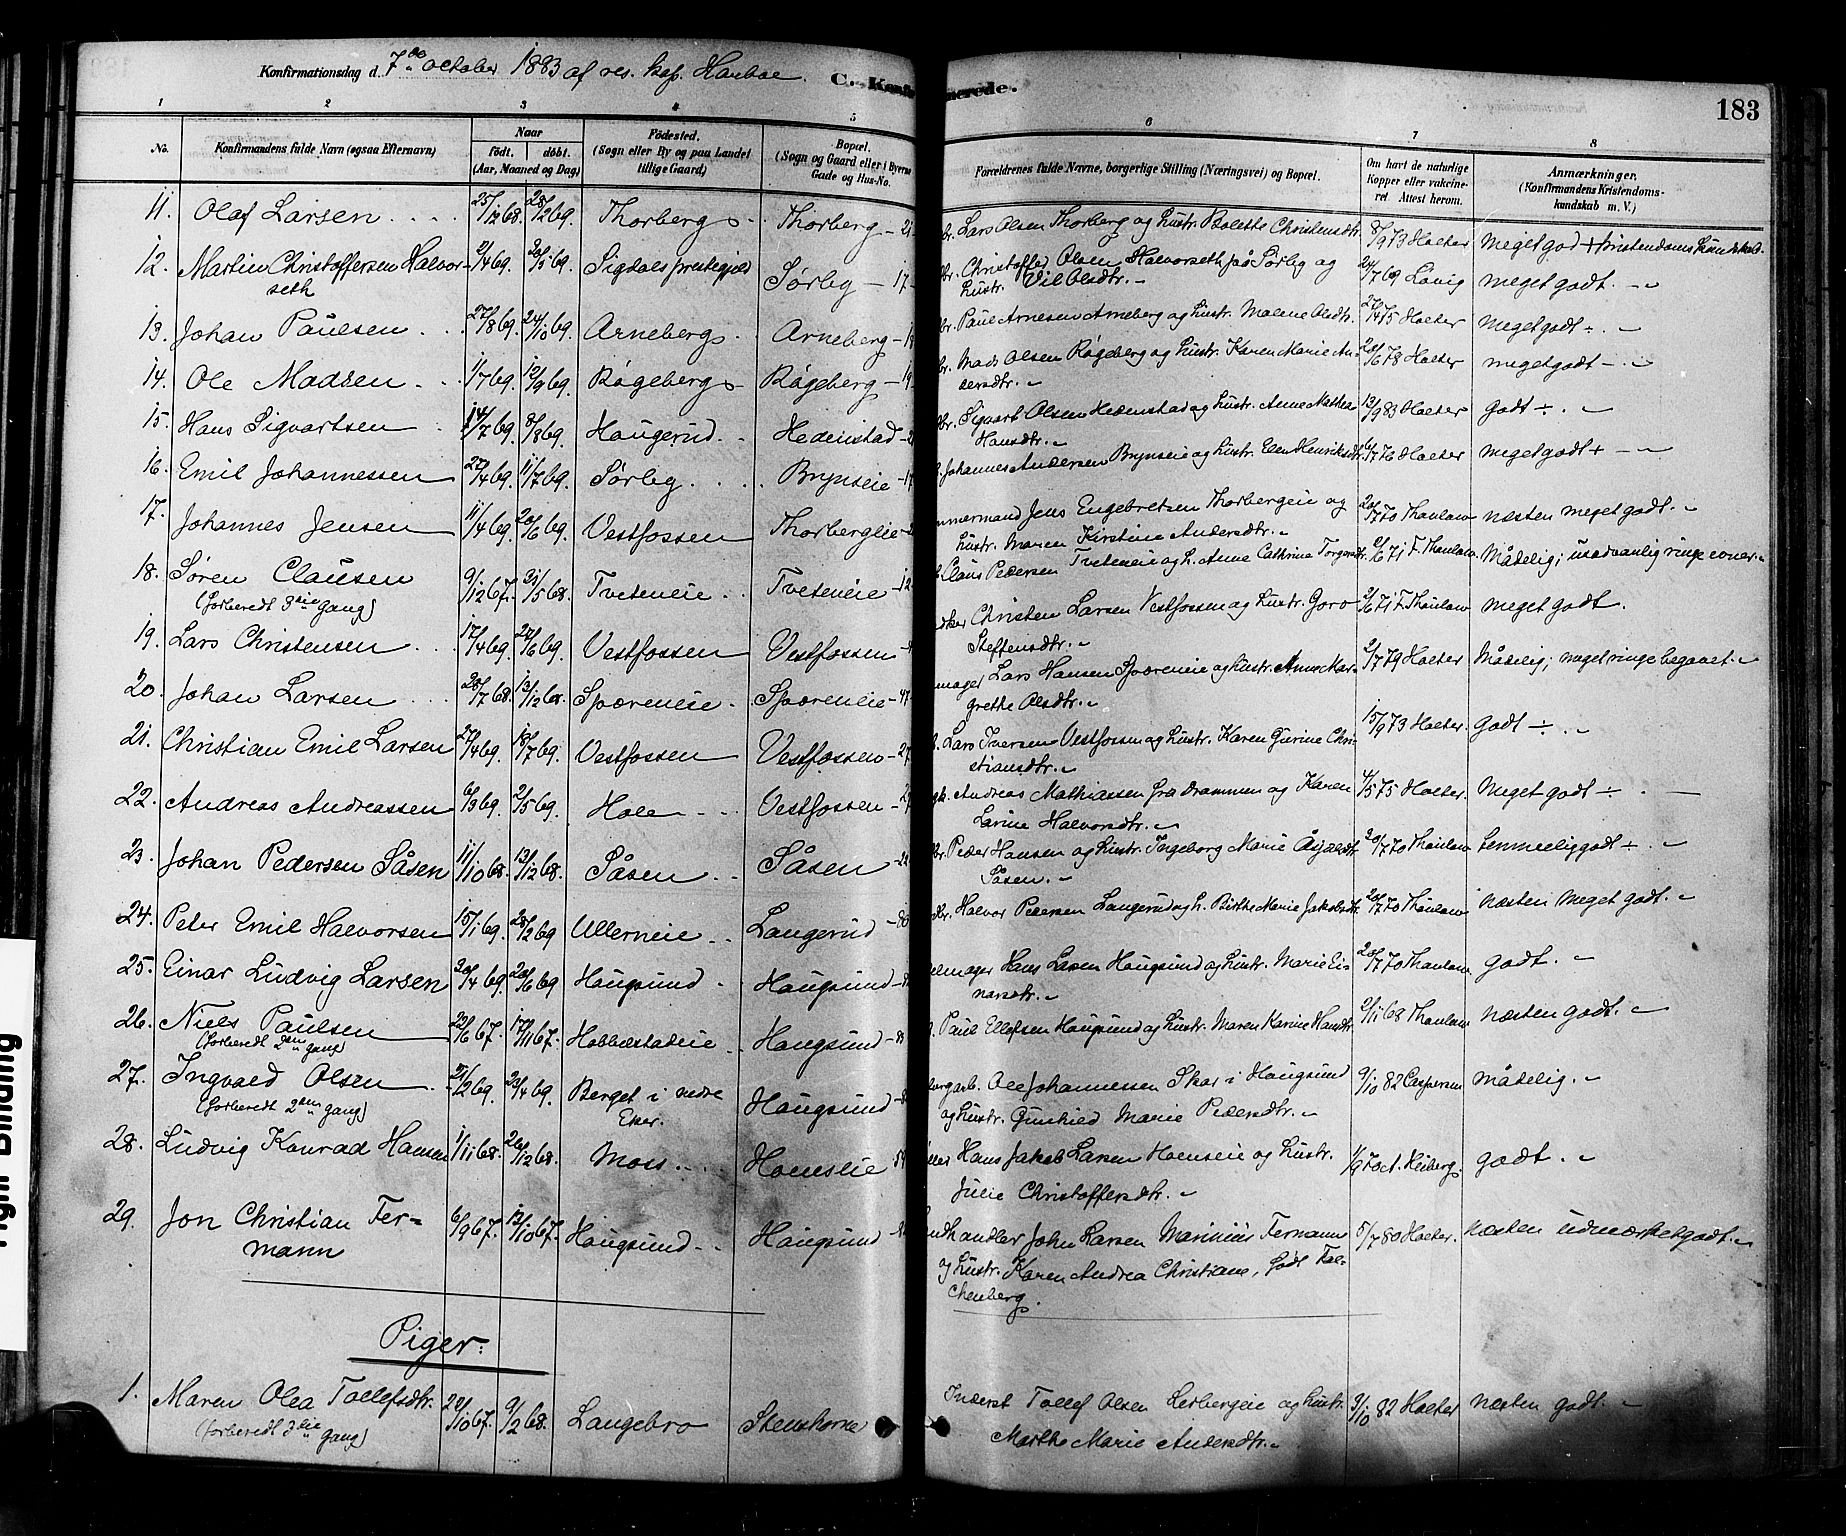 Konfirmationsdag d. 7de october 1883 af res. kap.
C. Konfir merede. 183
1 2 3 4 5 6 7 8
No. Konfirmandens fulde Navn (ogsaa Efternavn) Naar født. døbt. (Aar, Maaned og Dag) Fødested. (Sogn eller By og paa Landet tillige Gaard) Bopæl. (Sogn og Gaard eller i Byerne Gade og Hus-No. Forældrenes fulde Navne, borgerlige Stilling (Næringsvei) og Bopæl. Om havt de naturlige Kopper eller vakcineret Attest herom. Anmærkninger, (Konfirmandens Kristendomskundskab m. V.)
11. Olaf Larsen 25/12 68. 28/2 69. Thorberg Thorberg Lars Olsen Thorberg og hustr. Bolette Christensdtr. 8/9 73 Holter meget god + kristendomskundskab
12. Martin Christoffersen Halvorseth 2/4 69. 20/5 69. Sigdals prestegjeld Sørby – 17 Christoffer Olsen Halvorseth på Sørby og hustr. Olsdtr. 24/7 69 Løvig meget godt. –
13. Johan Paulsen 27/8 69. 24/10 69. Arneberg Arneberg Paul Arnesen Arneberg og hustr. Malene Olsdtr. 27/4 75 Holter meget godt ÷
14. Ole Madsen 1/7 69. 12/9 69. Røgeberg Røgeberg – 19 Mads Olsen Røgeberg og hustr. Karen Marie Andersdtr. 20/6 78 Holter meget godt –
15. Hans Sigvartsen 14/7 69. 8/8 69. Haugerud Hedenstad Sigvart Olsen Hedenstad og hustr. Anne Mathea Hansdtr. 13/9 83 Holter godt ÷
16. Emil Johannessen 27/4 69. 11/7 69. Sørby Brynseie – 17 Johannes Andersen Brynseie og hustr. Elen Henriksdtr. 6/7 76 Holter meget godt +
17. Johannes Jensen 11/4 69. 20/6 69. Vestfossen Thorbergeie Jens Engebretsen Thorbergeie og hustr. Maren Kirstine Andersdtr. 20/7 70 Thaulow næsten meget godt.
18. Søren Clausen (forberedt 3die gang) 9/12 67. 21/5 68. Tveteneie Tveteneie – 12 Claus Pedersen Tveteneie og h. Anne Cathrine Torgersdtr. 2/6 71 F. Thaulow Mådelig; usedvanlig ringe evner.
19. Lars Christensen 17/4 69. 27/6 69. Vestfossen Vestfossen Christen Larsen Vestfossen og hustr. Goro Steffensdtr. 2/6 71 F Thaulow meget godt.
20. Johan Larsen 28/7 68. 13/12 68. Sporeneie Sporeneie – 47 Lars Hansen Sporeneie og hustr. Anne Margrethe Olsdtr. 2/7 79 Holter Mådelig; meget ringe begavet.
21. Christian Emil Larsen 27/4 69. 18/7 69. Vestfossen Vestfossen – 27 Lars Iversen Vestfossen og hustr. Karen Gurine Christiansdtr. 15/9 73 Holter godt ÷
22. Andreas Andreassen 6/3 69. 2/5 69. Hole Vestfossen Andreas Mathiassen fra Drammen og Karen Larine Halvorsdtr. 4/5 75 Holter. Meget godt ÷
23. Johan Pedersen Såsen 11/10 68. 13/12 68. Såsen Såsen Peder Hansen og hustr. Ingeborg Marie Såsen. 20/7 70 Thaulow temmelig godt ÷
24. Peter Emil Halvorsen 15/1 69. 28/2 69 Ullerneie Langerud Halvor Pedersen Langerud og h. Birthe Marie Jakobsdtr. 20/7 70 Thaulow næsten meget godt.
25. Einar Ludvig Larsen 20/4 69. 20/6 69 Haugsund Haugsund Hans Larsen Haugsund og hustr. Marie Einarsdtr. 20/7 70 Thaulow godt.
26. Niels Paulsen (forberedt 2den gang) 22/6 67. 17/11 67. Hobbelstadeie Haugsund Paul Ellefsen Haugsund og hustr. Maren Karine Hansdtr. 2/11 68 Thaulow næsten godt.
27. Ingvald Olsen (forberedt 2den gang) 21/2 69. 23/4 69. Berget i nedre Eker. Haugsund Ole Johannessen Skar i Haugsund og hustr. Gunhild Marie Pedersdtr. 9/10 82 Caspersen mådelig.
28. Ludvig Konrad Hansen 1/11 68. 26/12 68. Moss Holmseie Hans Jakob Larsen Holmseie og hustr. Julie Christoffersdtr. 1/9 70 ct. Heiberg. godt.
29. Jon Christian Fermann 6/9 67. 13/10 67. Haugsund Haugsund Landhandler John Larsen Marinius Fermann og hustr. Karen Andrea Christiane, født Falchenberg. 5/7 80 Holter. næsten udmærket godt.
Piger:
1. Maren Olea Tollefsdtr. (forberedt 3die gang) 22/10 67. 9/2 68. Langebro Stenshorne Inderst Tollef Olsen Lerbergeie og hustr. Marthe Marie Andersdtr. 3/10 82 Holter næsten godt.